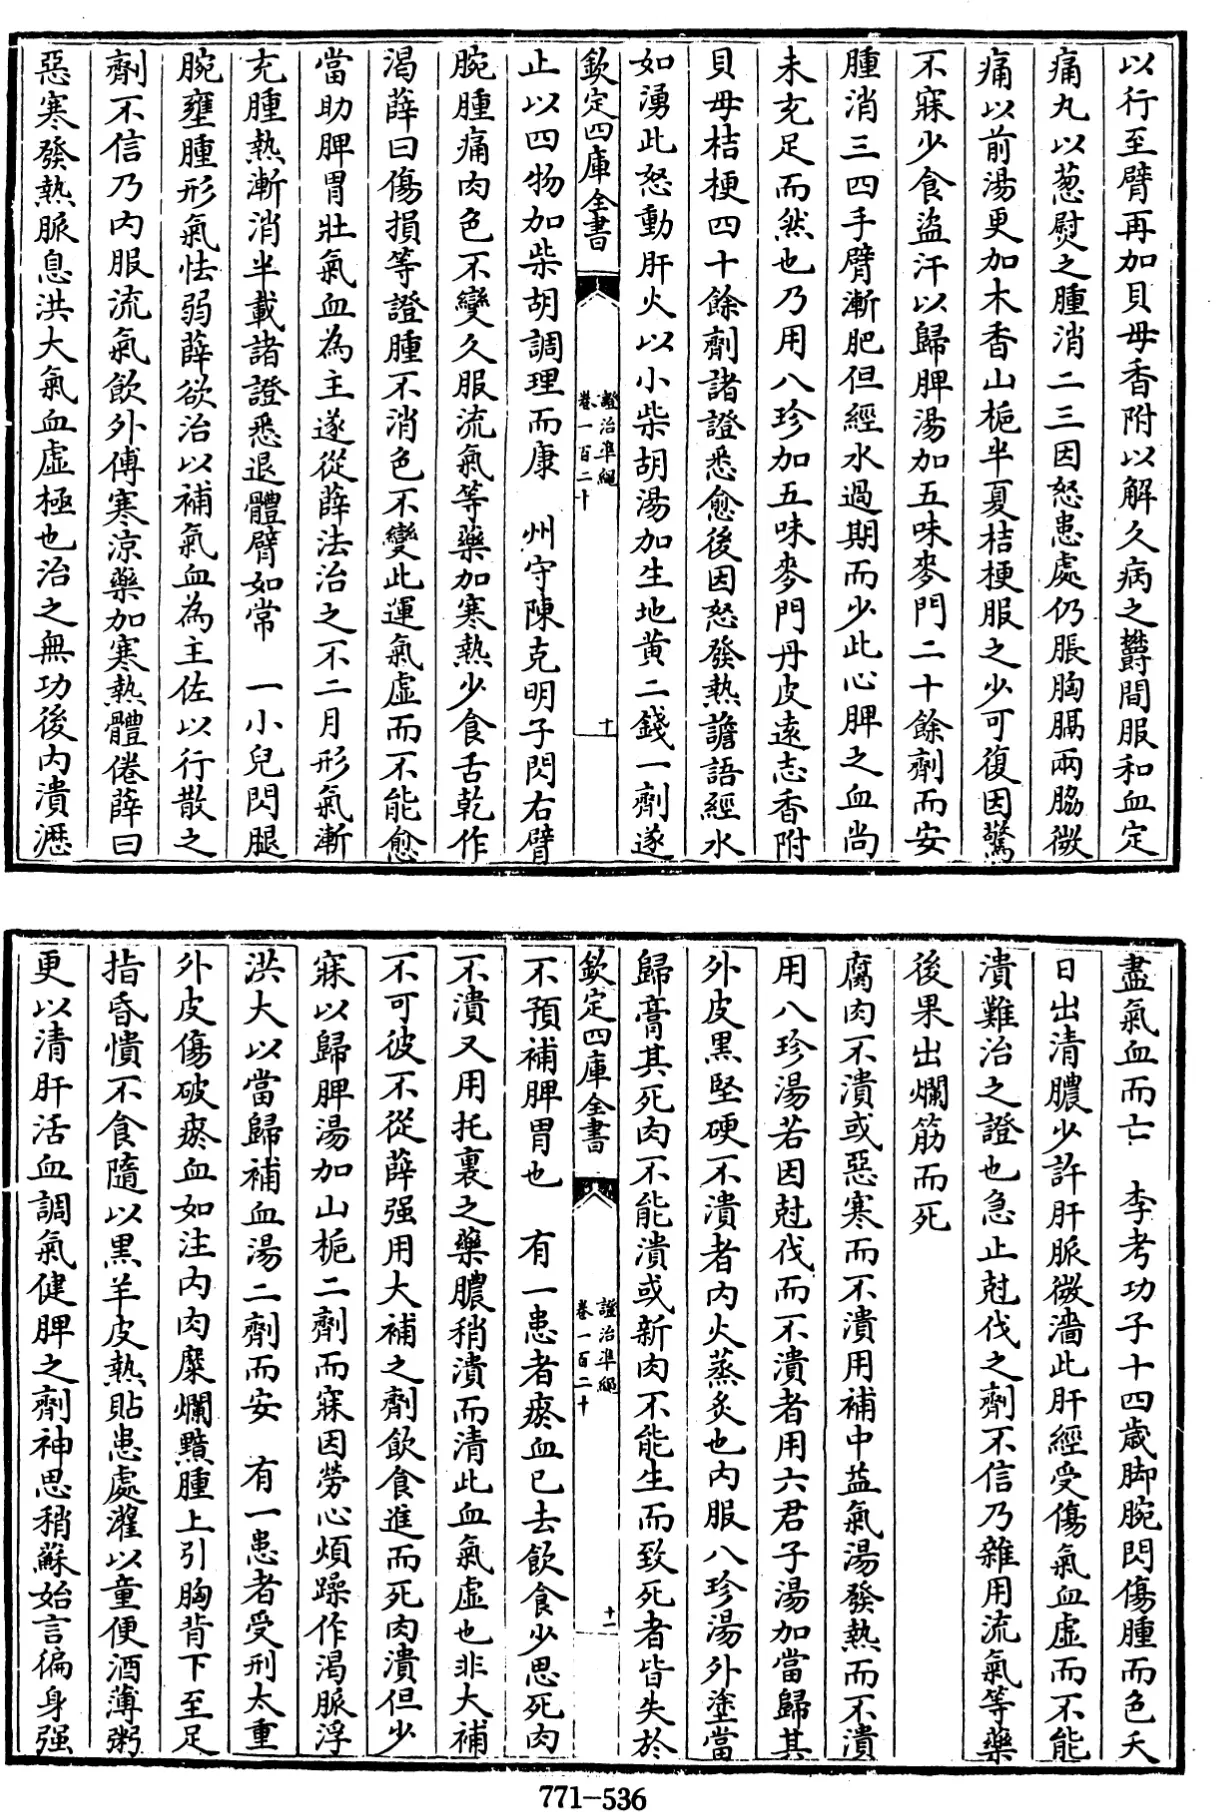 以行至臂再加貝母香附以解久病之欝間服和血定
痛丸以葱熨之腫消二三因怒患處仍脹胸膈兩脇微
痛以前湯更加木香山梔半夏桔梗服之少可復因驚
不寐少食盜汗以歸脾湯加五味麥門二十餘劑而安
腫消三四手臂漸肥但經水過期而少此心脾之血尚
未充足而然也乃用八珍加五味麥門丹皮遠志香附
貝母桔梗四十餘劑諸證悉愈後因怒發熱譫語經水
如湧此怒動肝火以小柴胡湯加生地黄二錢一劑遂
欽定四庫全書
證治準繩
卷一百二十
十
止以四物加柴胡調理而康　州守陳克明子閃右臂
腕腫痛肉色不變久服流氣等藥加寒熱少食舌乾作
渴薛曰傷損等證腫不消色不變此運氣虛而不能愈
當助脾胃壯氣血為主遂從薛法治之不二月形氣漸
充腫熱漸消半載諸證悉退體臂如常　一小兒閃腿
腕壅腫形氣怯弱薛欲治以補氣血為主佐以行散之
劑不信乃內服流氣飲外傅寒涼藥加寒熱體倦薛曰
惡寒發熱脈息洪大氣血虛極也治之無功後內潰瀝
盡氣血而亡　李考功子十四歲脚腕閃傷腫而色夭
日出清膿少許肝脈微濇此肝經受傷氣血虛而不能
潰難治之證也急止尅伐之劑不信乃雜用流氣等藥
後果出爛筋而死
腐肉不潰或惡寒而不潰用補中益氣湯發熱而不潰
用八珍湯若因尅伐而不潰者用六君子湯加當歸其
外皮黑堅硬不潰者內火蒸炙也內服八珍湯外塗當
歸膏其死肉不能潰或新肉不能生而致死者皆失於
欽定四庫全書
證治準繩
卷一百二十
十一
不預補脾胃也　有一患者瘀血已去飲食少思死肉
不潰又用托裏之藥膿稍潰而清此血氣虛也非大補
不可彼不從薛强用大補之劑飲食進而死肉潰但少
寐以歸脾湯加山梔二劑而寐因勞心煩躁作渴脈浮
洪大以當歸補血湯二劑而安　有一患者受刑太重
外皮傷破瘀血如注內肉糜爛黯腫上引胸背下至足
指昏憒不食隨以黑羊皮熱貼患處灌以童便酒薄粥
更以清肝活血調氣健脾之劑神思稍蘇始言徧身强
771—536